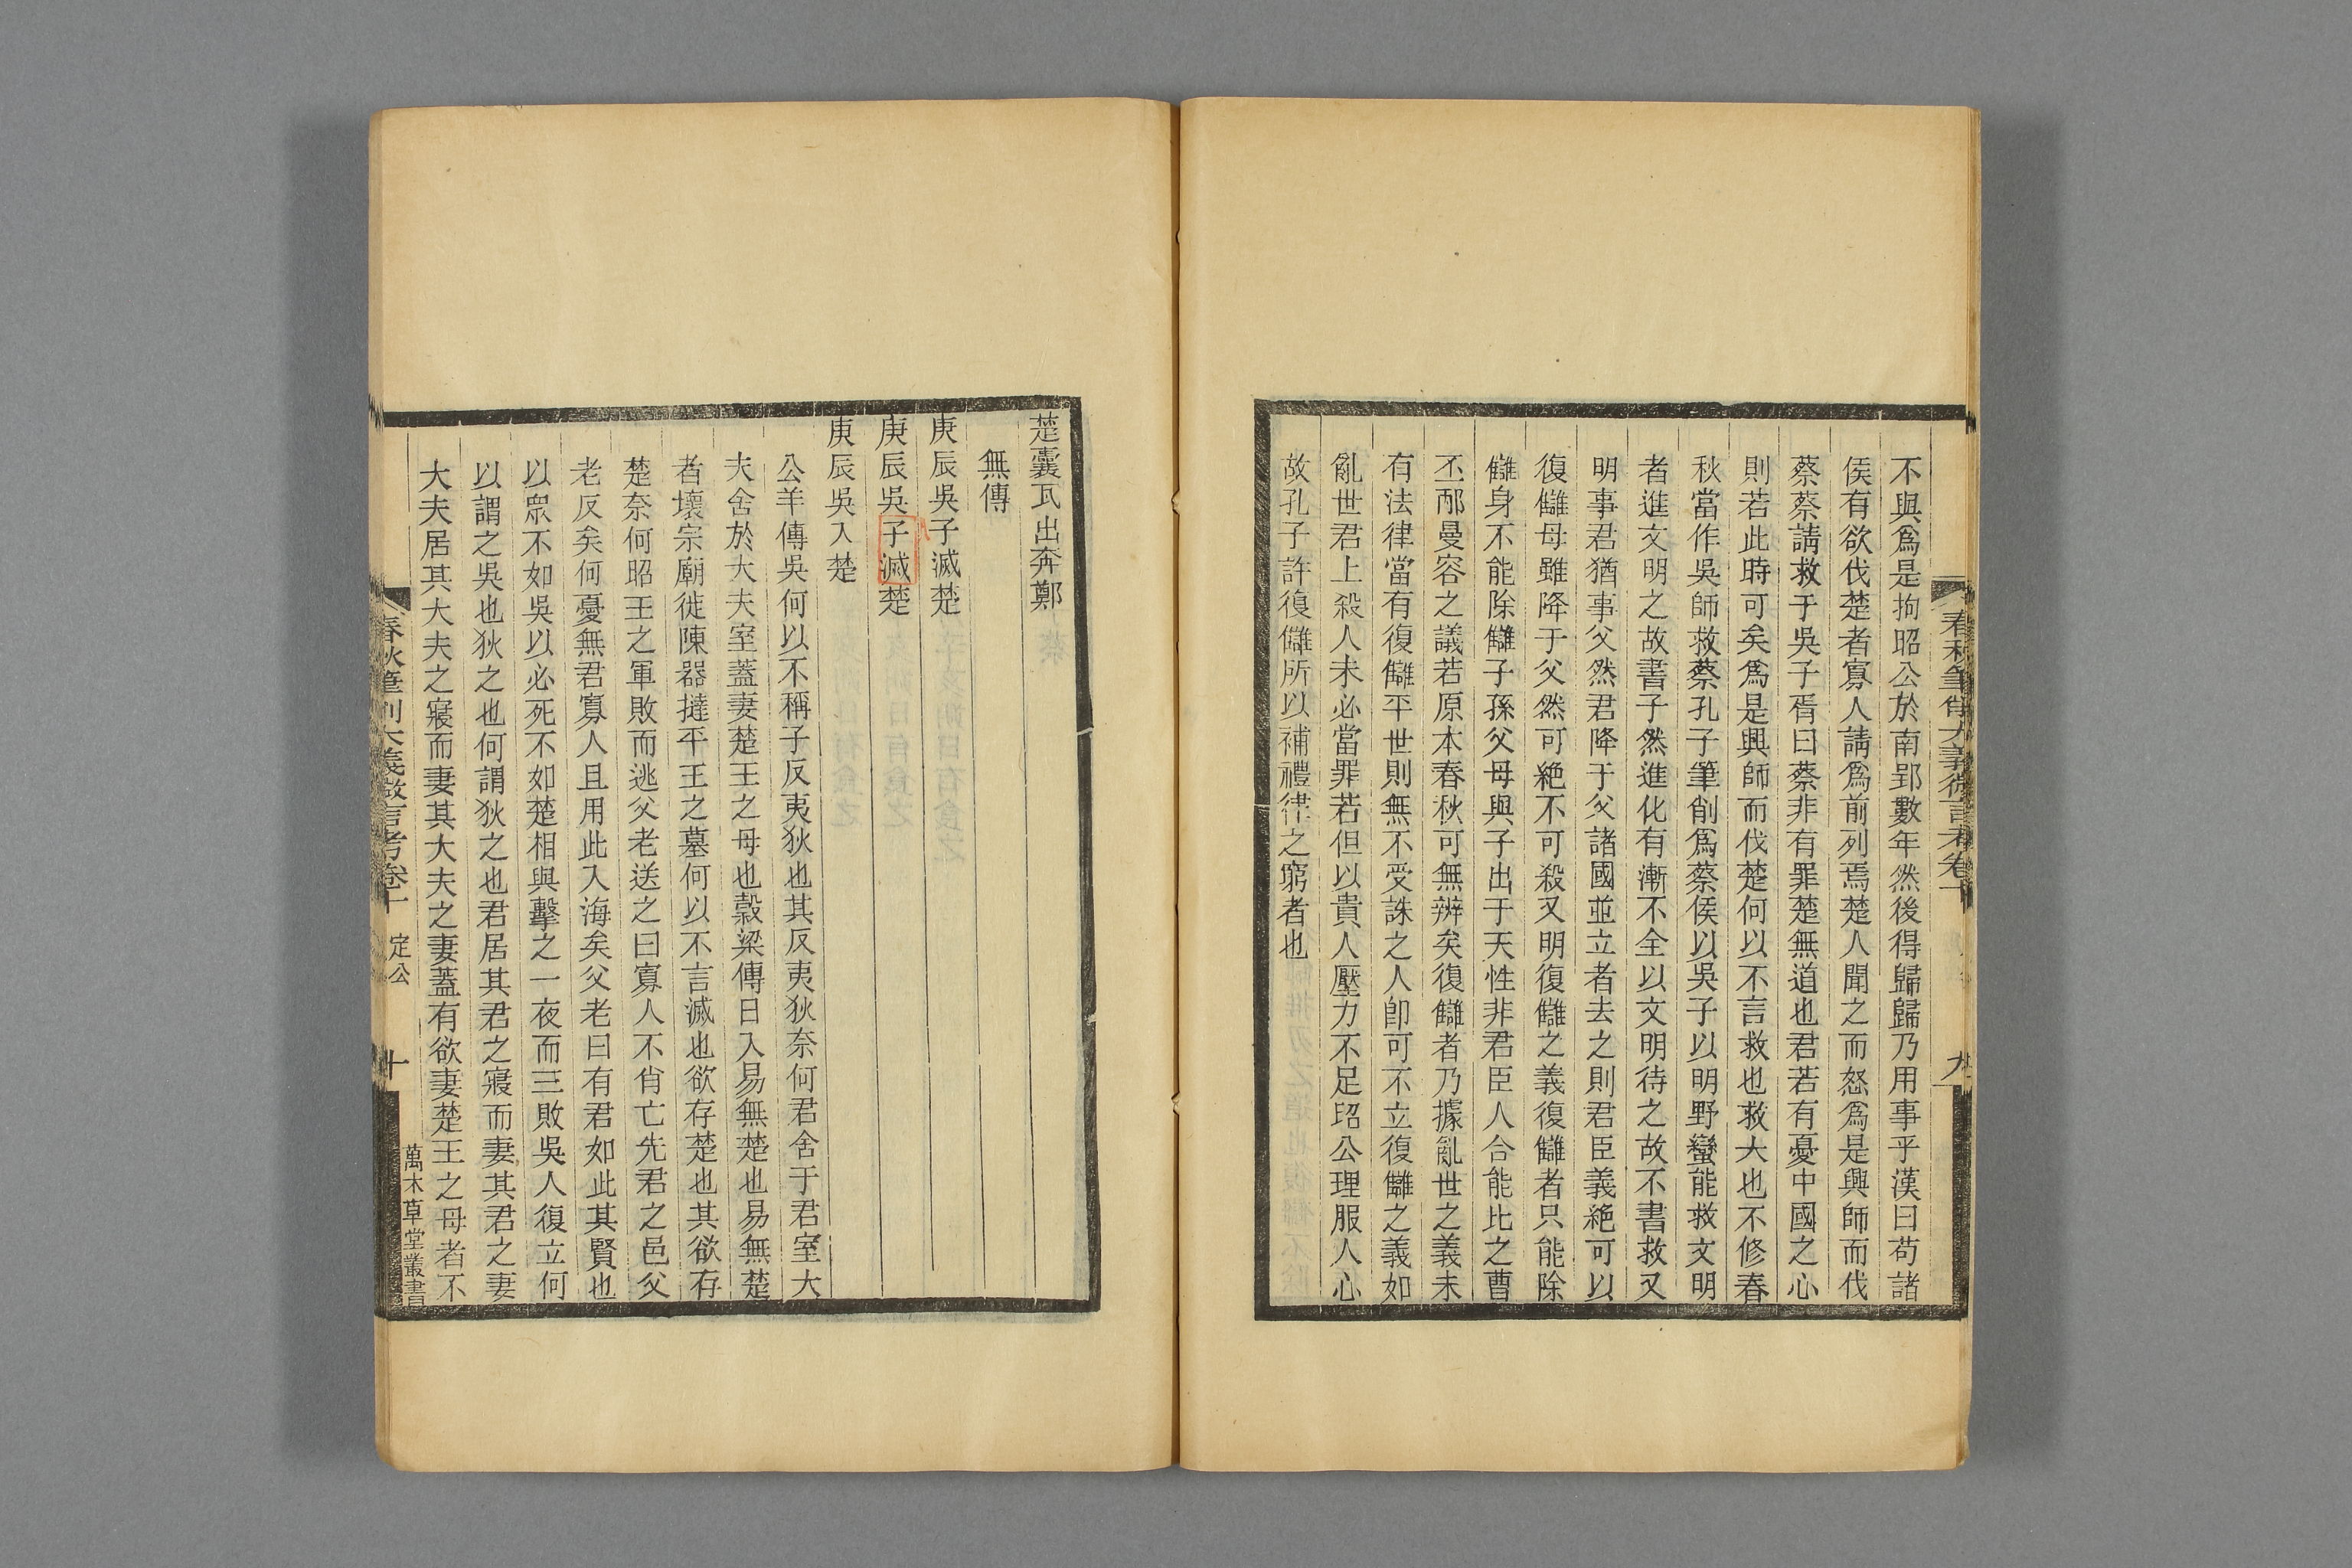 不與爲是拘昭公於南郢數年然後得歸歸乃用事乎漢曰苟諸
侯有欲伐楚者寡人請爲前列焉楚人聞之而怒爲是興師而伐
蔡蔡請救于吳子胥曰蔡非有罪楚無道也君若有憂中國之心
則若此時可矣爲是興師而伐楚何以不言救也救大也不修春
秋當作吳師救蔡孔子筆削爲蔡侯以吳子以明野蠻能救文明
者進文明之故書子然進化有漸不全以文明待之故不書救又
明事君猶事父然君降于父諸國並立者去之則君臣義絶可以
復讎母雖降于父然可絶不可殺又明復讎之義復讎者只能除
讎身不能除讎子孫父母與子出于天性非君臣人合能比之曹
丕邴曼容之議若原本春秋可無辨矣復讎者乃據亂世之義未
有法律當有復讎平世則無不受誅之人卽可不立復讎之義如
亂世君上殺人未必當罪若但以貴人壓力不足㧕公理服人心
故孔子許復讎所以補禮律之窮者也
春秋筆削大義微言考卷十
九
楚囊瓦出奔鄭
無傳
庚辰吳子滅楚
庚辰吳子滅楚
庚辰吳入楚
公羊傳吳何以不稱子反夷狄也其反夷狄奈何君舍于君室大
夫舍於大夫室蓋妻楚王之母也穀梁傳日入易無楚也易無楚
者壞宗廟徙陳器撻平王之墓何以不言滅也欲存楚也其欲存
楚奈何昭王之軍敗而逃父老送之曰寡人不肖亡先君之邑父
老反矣何憂無君寡人且用此入海矣父老曰有君如此其賢也
以眾不如吳以必死不如楚相與擊之一夜而三敗吳人復立何
以謂之吳也狄之也何謂狄之也君居其君之寢而妻其君之妻
大夫居其大夫之寢而妻其大夫之妻蓋有欲妻楚王之母者不
春秋筆削大義微言考卷十 定公
十
萬木草堂叢書